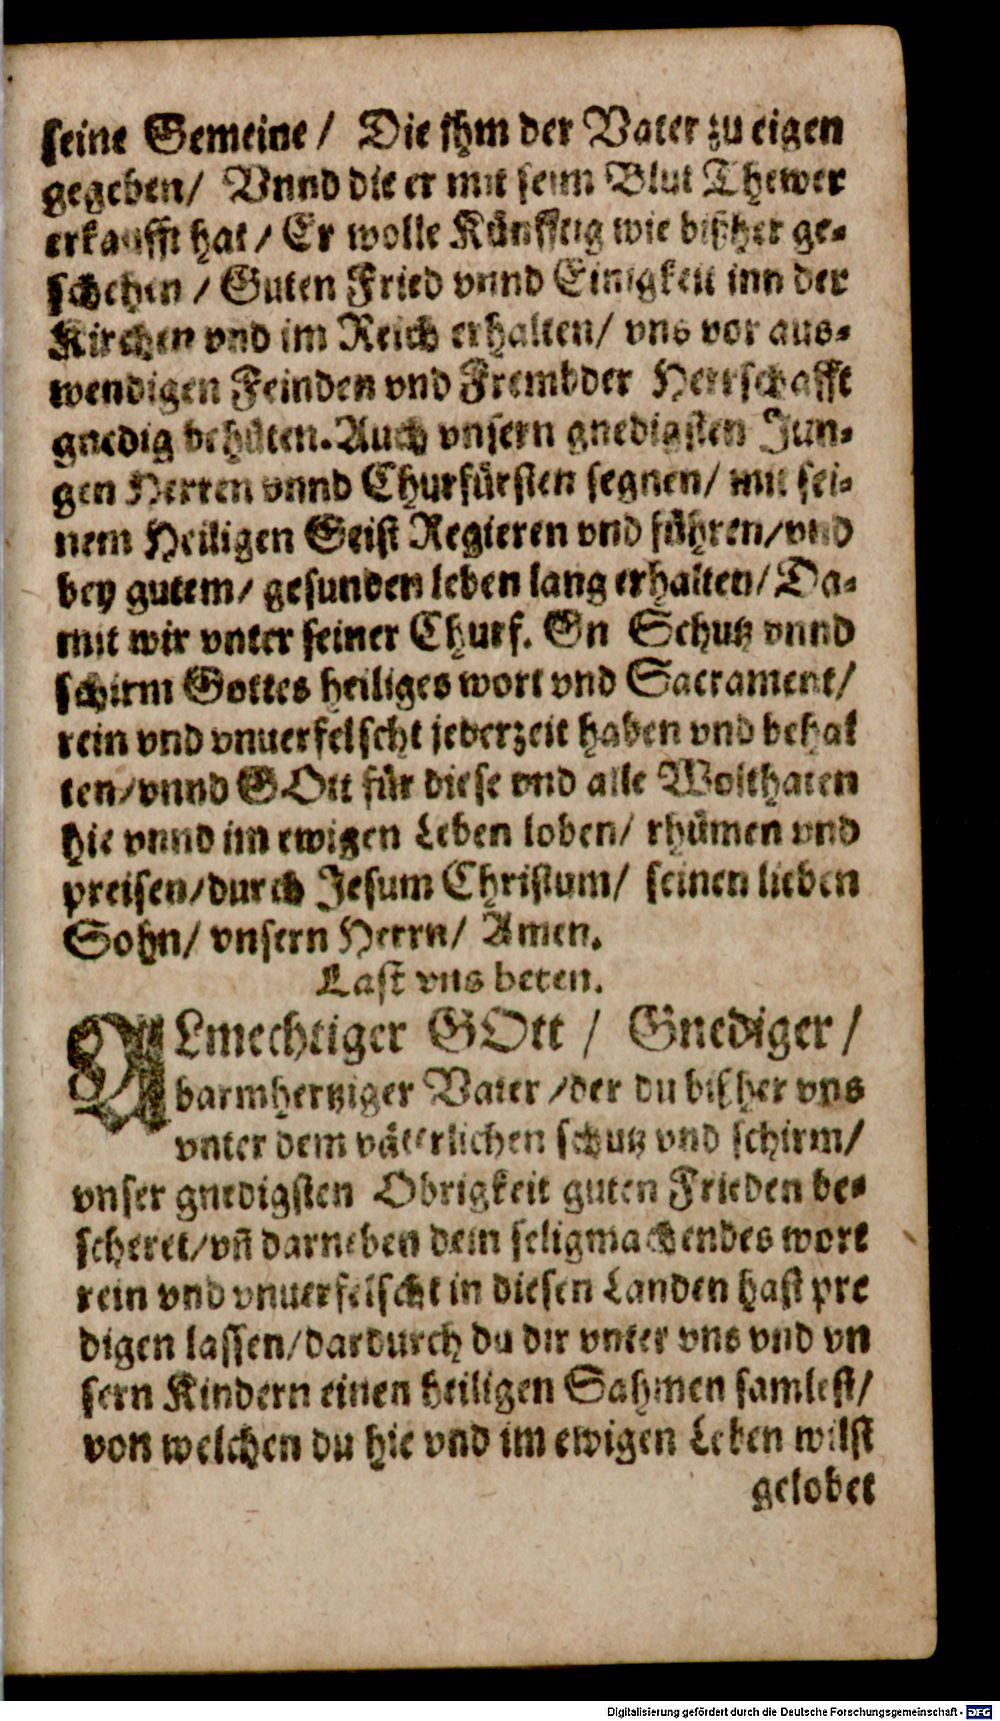 seine Gemeine / Die jhm der Vater zu eigen
gegeben / Vnnd die er mit seim Blut Thewer
erkaufft hat / Er wolle Künfftig wie bißher ge-
schehen / Guten Fried vnnd Einigkeit inn der
Kirchen vnd im Reich erhalten / vns vor aus-
wendigen Feinden vnd Frembder Herrschafft
gnedig behüten. Auch vnsern gnedigsten Jun-
gen Herren vnnd Churfürsten segnen / mit sei-
nem Heiligen Geist Regieren vnd führen / vnd
bey gutem / gesunden leben lang erhalten / Da-
mit wir vnter seiner Churf. Gn Schutz vnnd
schirm Gottes heiliges wort vnd Sacrament /
rein vnd vnuerfelscht jederzeit haben vnd behal
ten / vnnd GOtt für diese vnd alle Wolthaten
hie vnnd im ewigen Leben loben / rhümen vnd
preisen / durch Jesum Christum / seinen lieben
Sohn / vnsern Herrn / Amen.
Last vns beten.
ALmechtiger GOtt / Gnediger /
barmhertziger Vater / der du bißher vns
vnter dem väterlichen schutz vnd schirm /
vnser gnedigsten Obrigkeit guten Frieden be-
scheret / vñ darneben dein seligmachendes wort
rein vnd vnuerfelscht in diesen Landen hast pre
digen lassen / dardurch du dir vnter vns vnd vn
sern Kindern einen heiligen Sahmen samlest /
von welchen du hie vnd im ewigen Leben wilst
gelobet
Digitalisierung gefördert durch die Deutsche Forschungsgemeinschaft - DFG